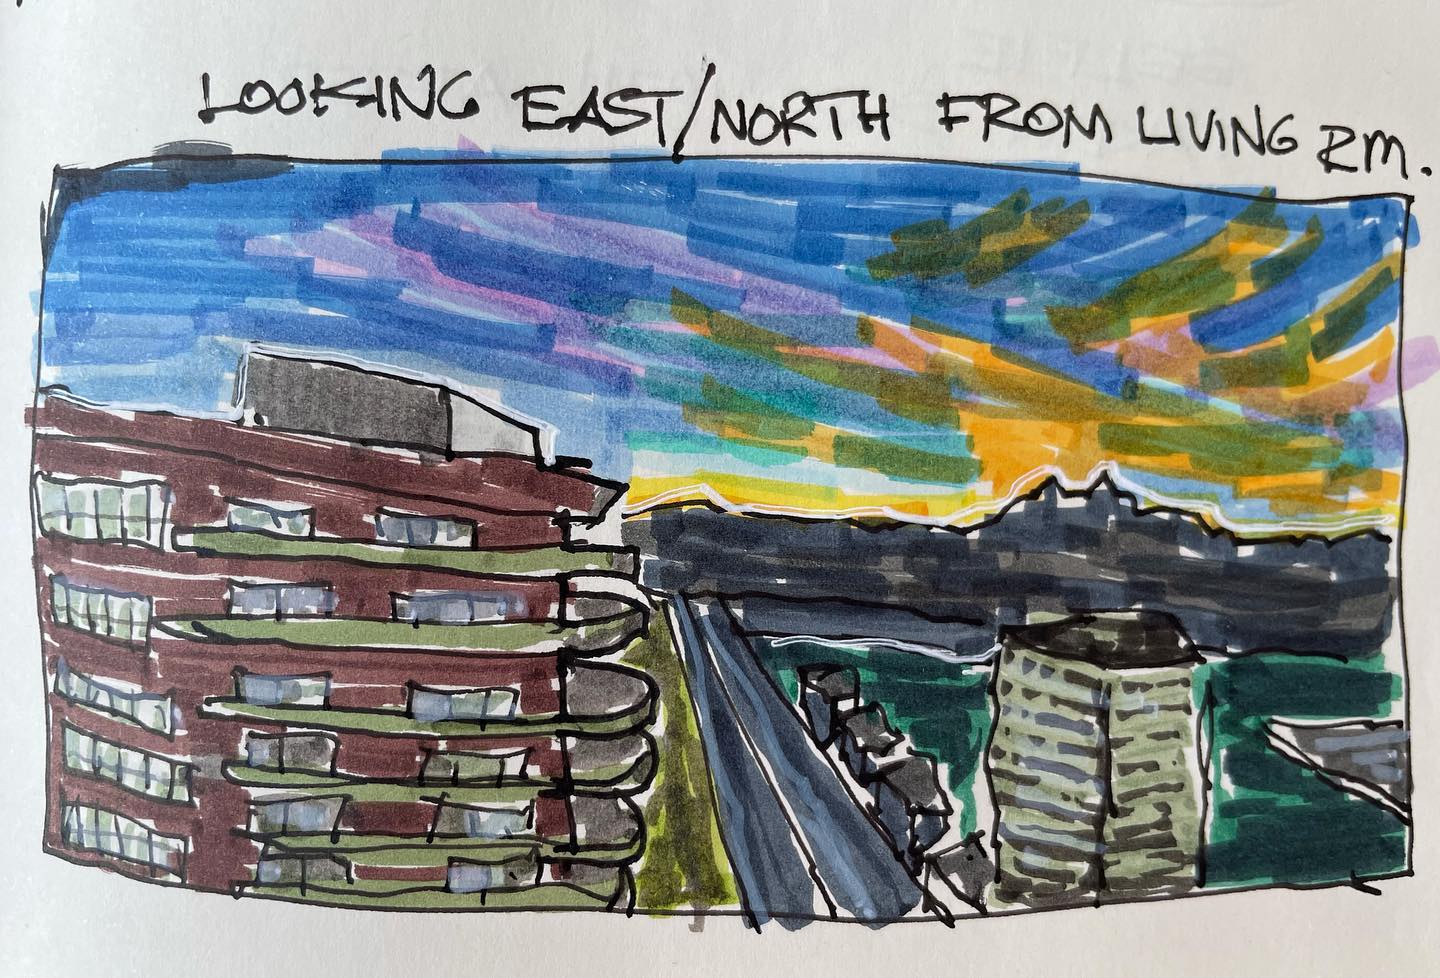 LOOKING EAST/NORTH FROM LIVING RM.